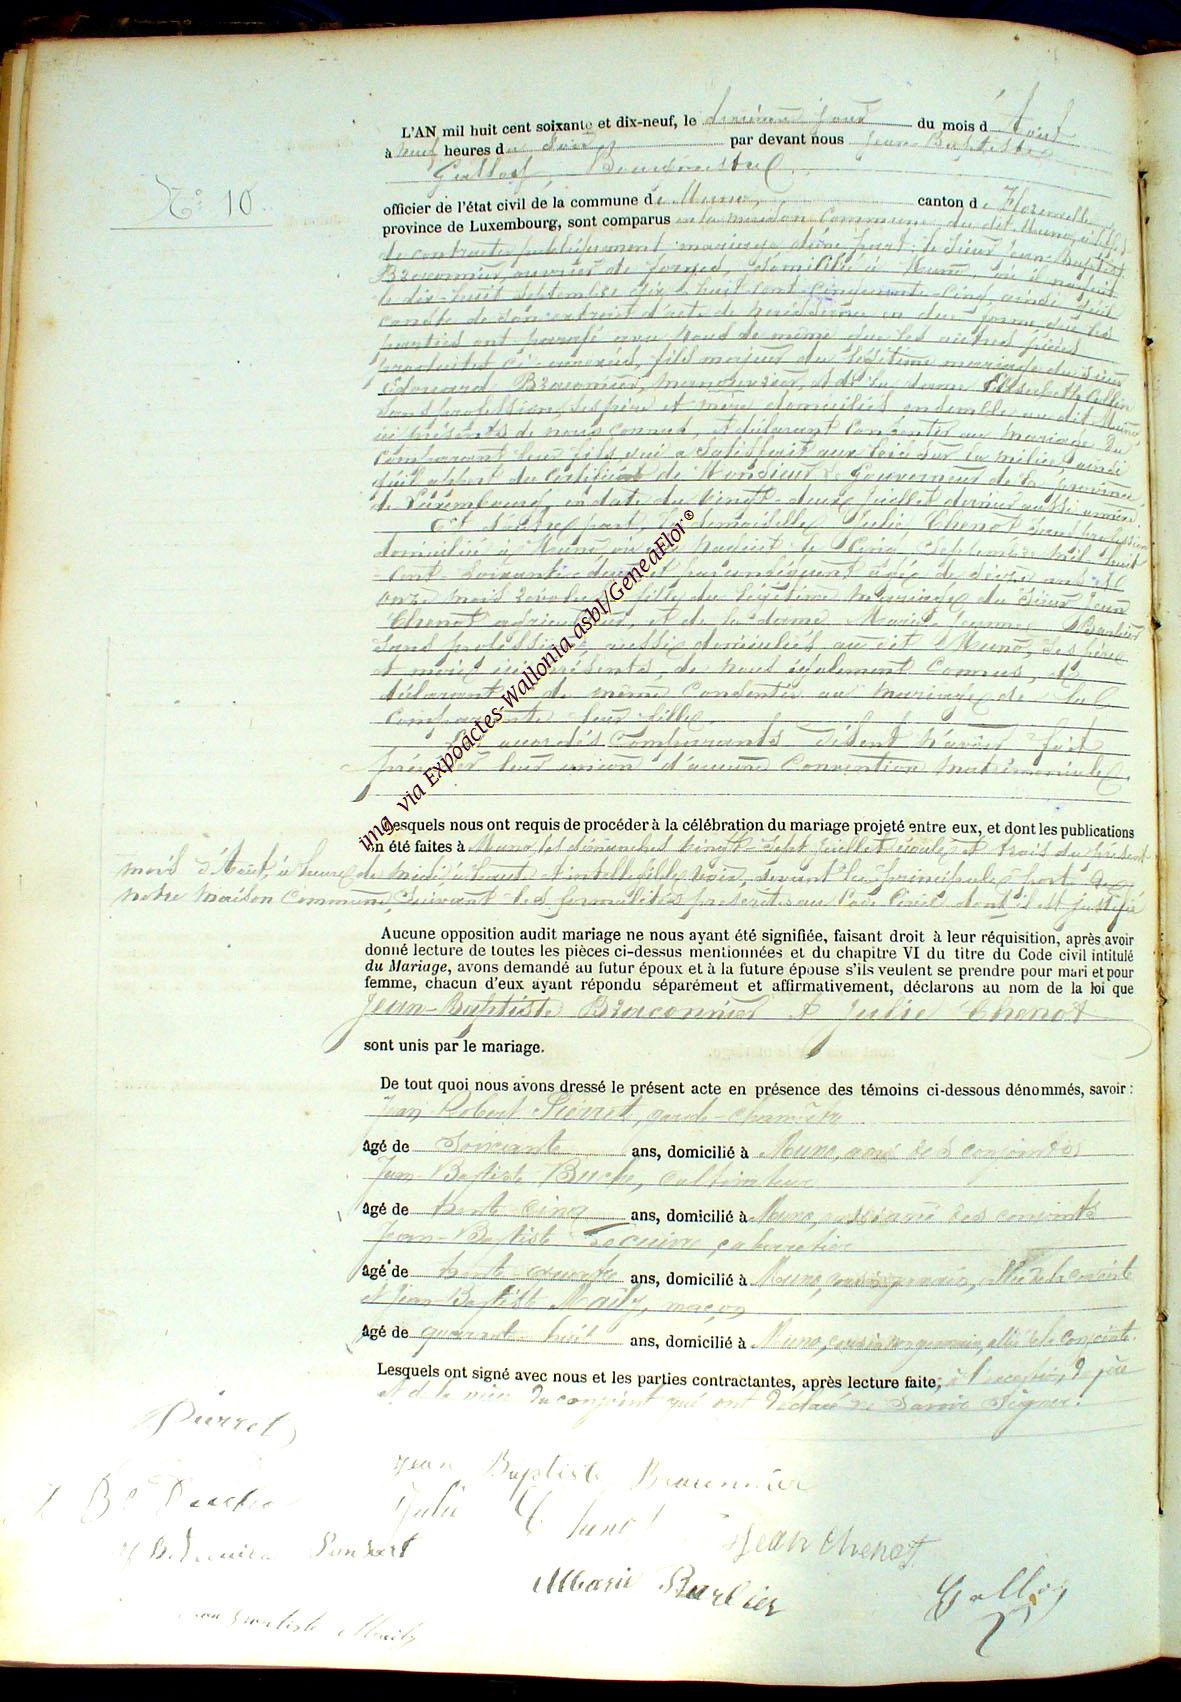 N° 10
L'AN mil huit cent soixante et dix-neuf, le jour du mois d'Août
à neuf heures du soir par devant nous Jean Baptiste
Bourgmestre
officier de l'état civil de la commune de Muno, canton de Florenville,
province de Luxembourg, sont comparus en la maison commune du dit Muno,
de contracter publiquement mariage d'une part: le sieur Jean-Baptiste
Braconnier, ouvrier de forges, domicilié à Muno, où il naquit
le dix-huit Septembre dix-huit cent cinquante-cinq, ainsi qu'il
conste de son extrait d'acte de naissance en due forme que les
parties ont parafé avec nous de même que les autres pièces
produites ci-annexées, fils majeur du légitime mariage du sieur
Edouard Braconnier, manouvrier, et de la dame Elisabeth Collin
sans profession, ses père et mère domiciliés ensemble au dit Muno
ici présents de nous connus, et déclarant consentir au mariage du
comparant leur fils, qui a satisfait aux lois sur la milice, ainsi
qu'il appert du certificat de Monsieur le Gouverneur de la province
de Luxembourg, en date du vingt-deux juillet dernier aussi annexé.
Et d'autre part, la demoiselle Julie Chenot sans profession
domiciliée à Muno où elle naquit le cinq Septembre mil huit
cent soixante-deux et par conséquent âgée de seize ans et
onze mois révolus, fille du légitime mariage du sieur Jean
Chenot agriculteur, et de la dame Marie-Jeanne Barbier
sans profession aussi domiciliés au dit Muno, ses père
et mère ici présents, de nous également connus, et
déclarant de même consentir au mariage de la
comparante leur fille.
Les accordés comparants disent n'avoir fait
précéder leur union d'aucune convention matrimoniale.
Lesquels nous ont requis de procéder à la célébration du mariage projeté entre eux, et dont les publications
ont été faites à Muno, les dimanches vingt-sept juillet écoulé et trois du présent
mois d'Août, à heure de midi, à haute et intelligible voix, devant la principale porte de
notre maison commune, suivant les formalités prescrites au Code Civil dont il est justifié
Aucune opposition audit mariage ne nous ayant été signifiée, faisant droit à leur réquisition, après avoir
donné lecture de toutes les pièces ci-dessus mentionnées et du chapitre VI du titre du Code civil intitulé
du Mariage, avons demandé au futur époux et à la future épouse s'ils veulent se prendre pour mari et pour
femme, chacun d'eux ayant répondu séparément et affirmativement, déclarons au nom de la loi que
Jean-Baptiste Braconnier et Julie Chenot
sont unis par le mariage.
De tout quoi nous avons dressé le présent acte en présence des témoins ci-dessous dénommés, savoir :
Jean Robert Pierret, garde-champêtre
âgé de soixante ans, domicilié à Muno, ami des conjoints
Jean-Baptiste Buche, cultivateur
âgé de trente-cinq ans, domicilié à Muno, des conjoints
Jean-Baptiste Lécuivre, cabaretier
âgé de trente-quatre ans, domicilié à Muno, cousin germain, allié de la conjointe
et Jean-Baptiste Maily, maçon
âgé de quarante-huit ans, domicilié à Muno, cousin germain, allié de la conjointe.
Lesquels ont signé avec nous et les parties contractantes, après lecture faite, à l'exception du père
et de la mère du conjoint qui ont déclaré ne savoir signer.
Pierret
Jean Baptiste Braconnier
Julie Chenot
Jean Chenot
Marie Barbier
Jean Baptiste Maily
img via Expoactes-Wallonia asbl/GeneaFlor®